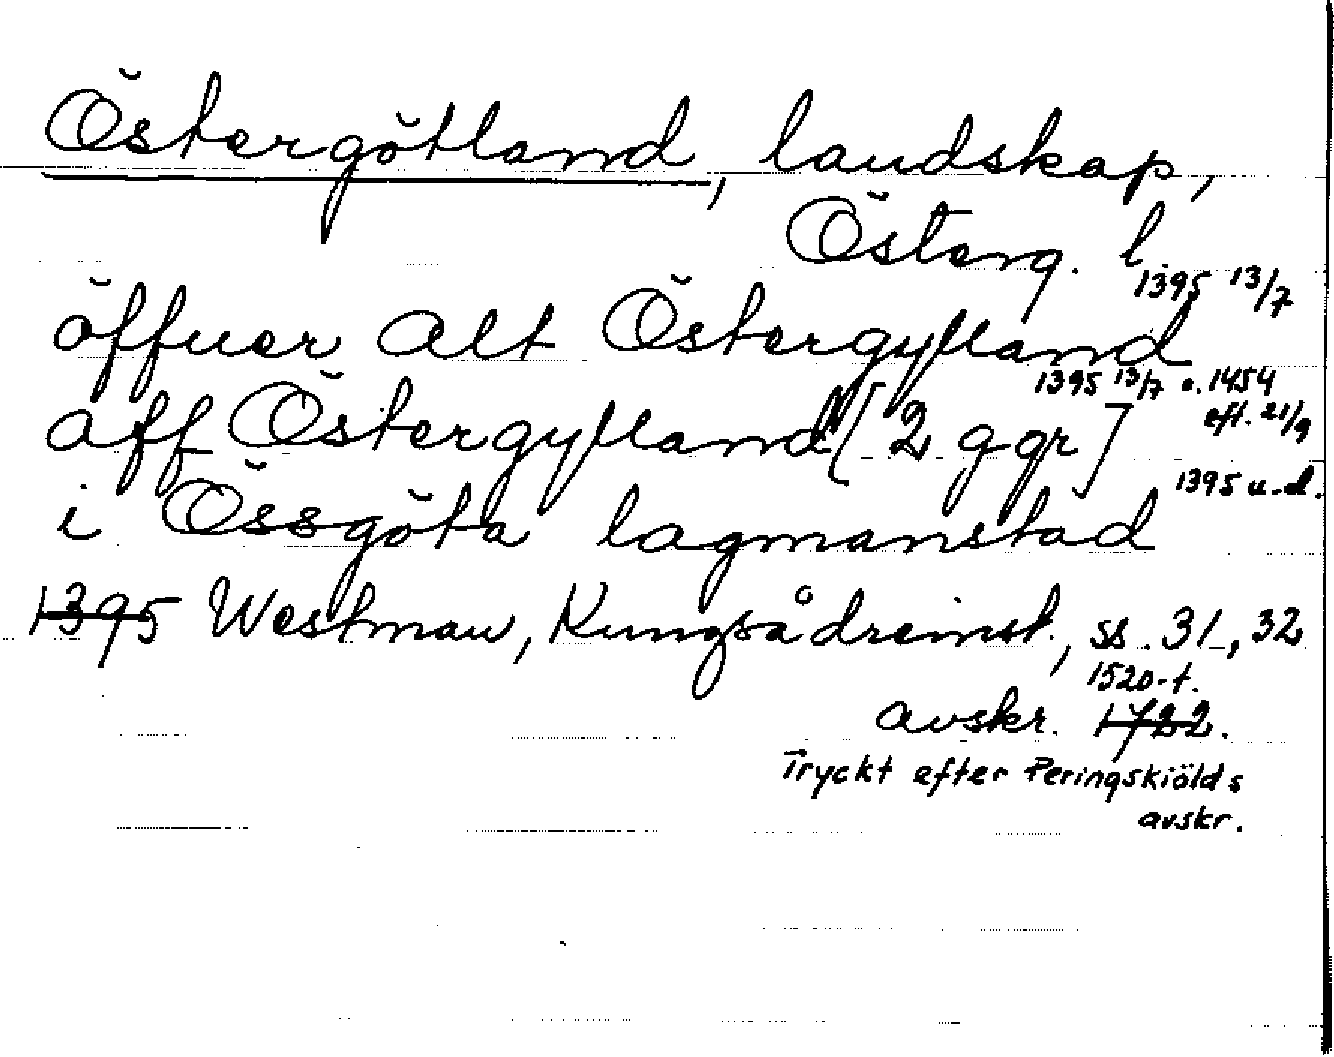 Östergötland, landskap,
Österg. l.
1395 13/7
öffuer alt Östergylland
1395 13/7 o. 1454
eft. 21/9
aff Östergylland [2 ggr]
1395 u.d.
i Össgöta lagmanstad
1395 Westman, Kungsådreinst., ss. 31, 32
1520-t.
avskr. 1722.
Tryckt efter Peringskiölds
avskr.